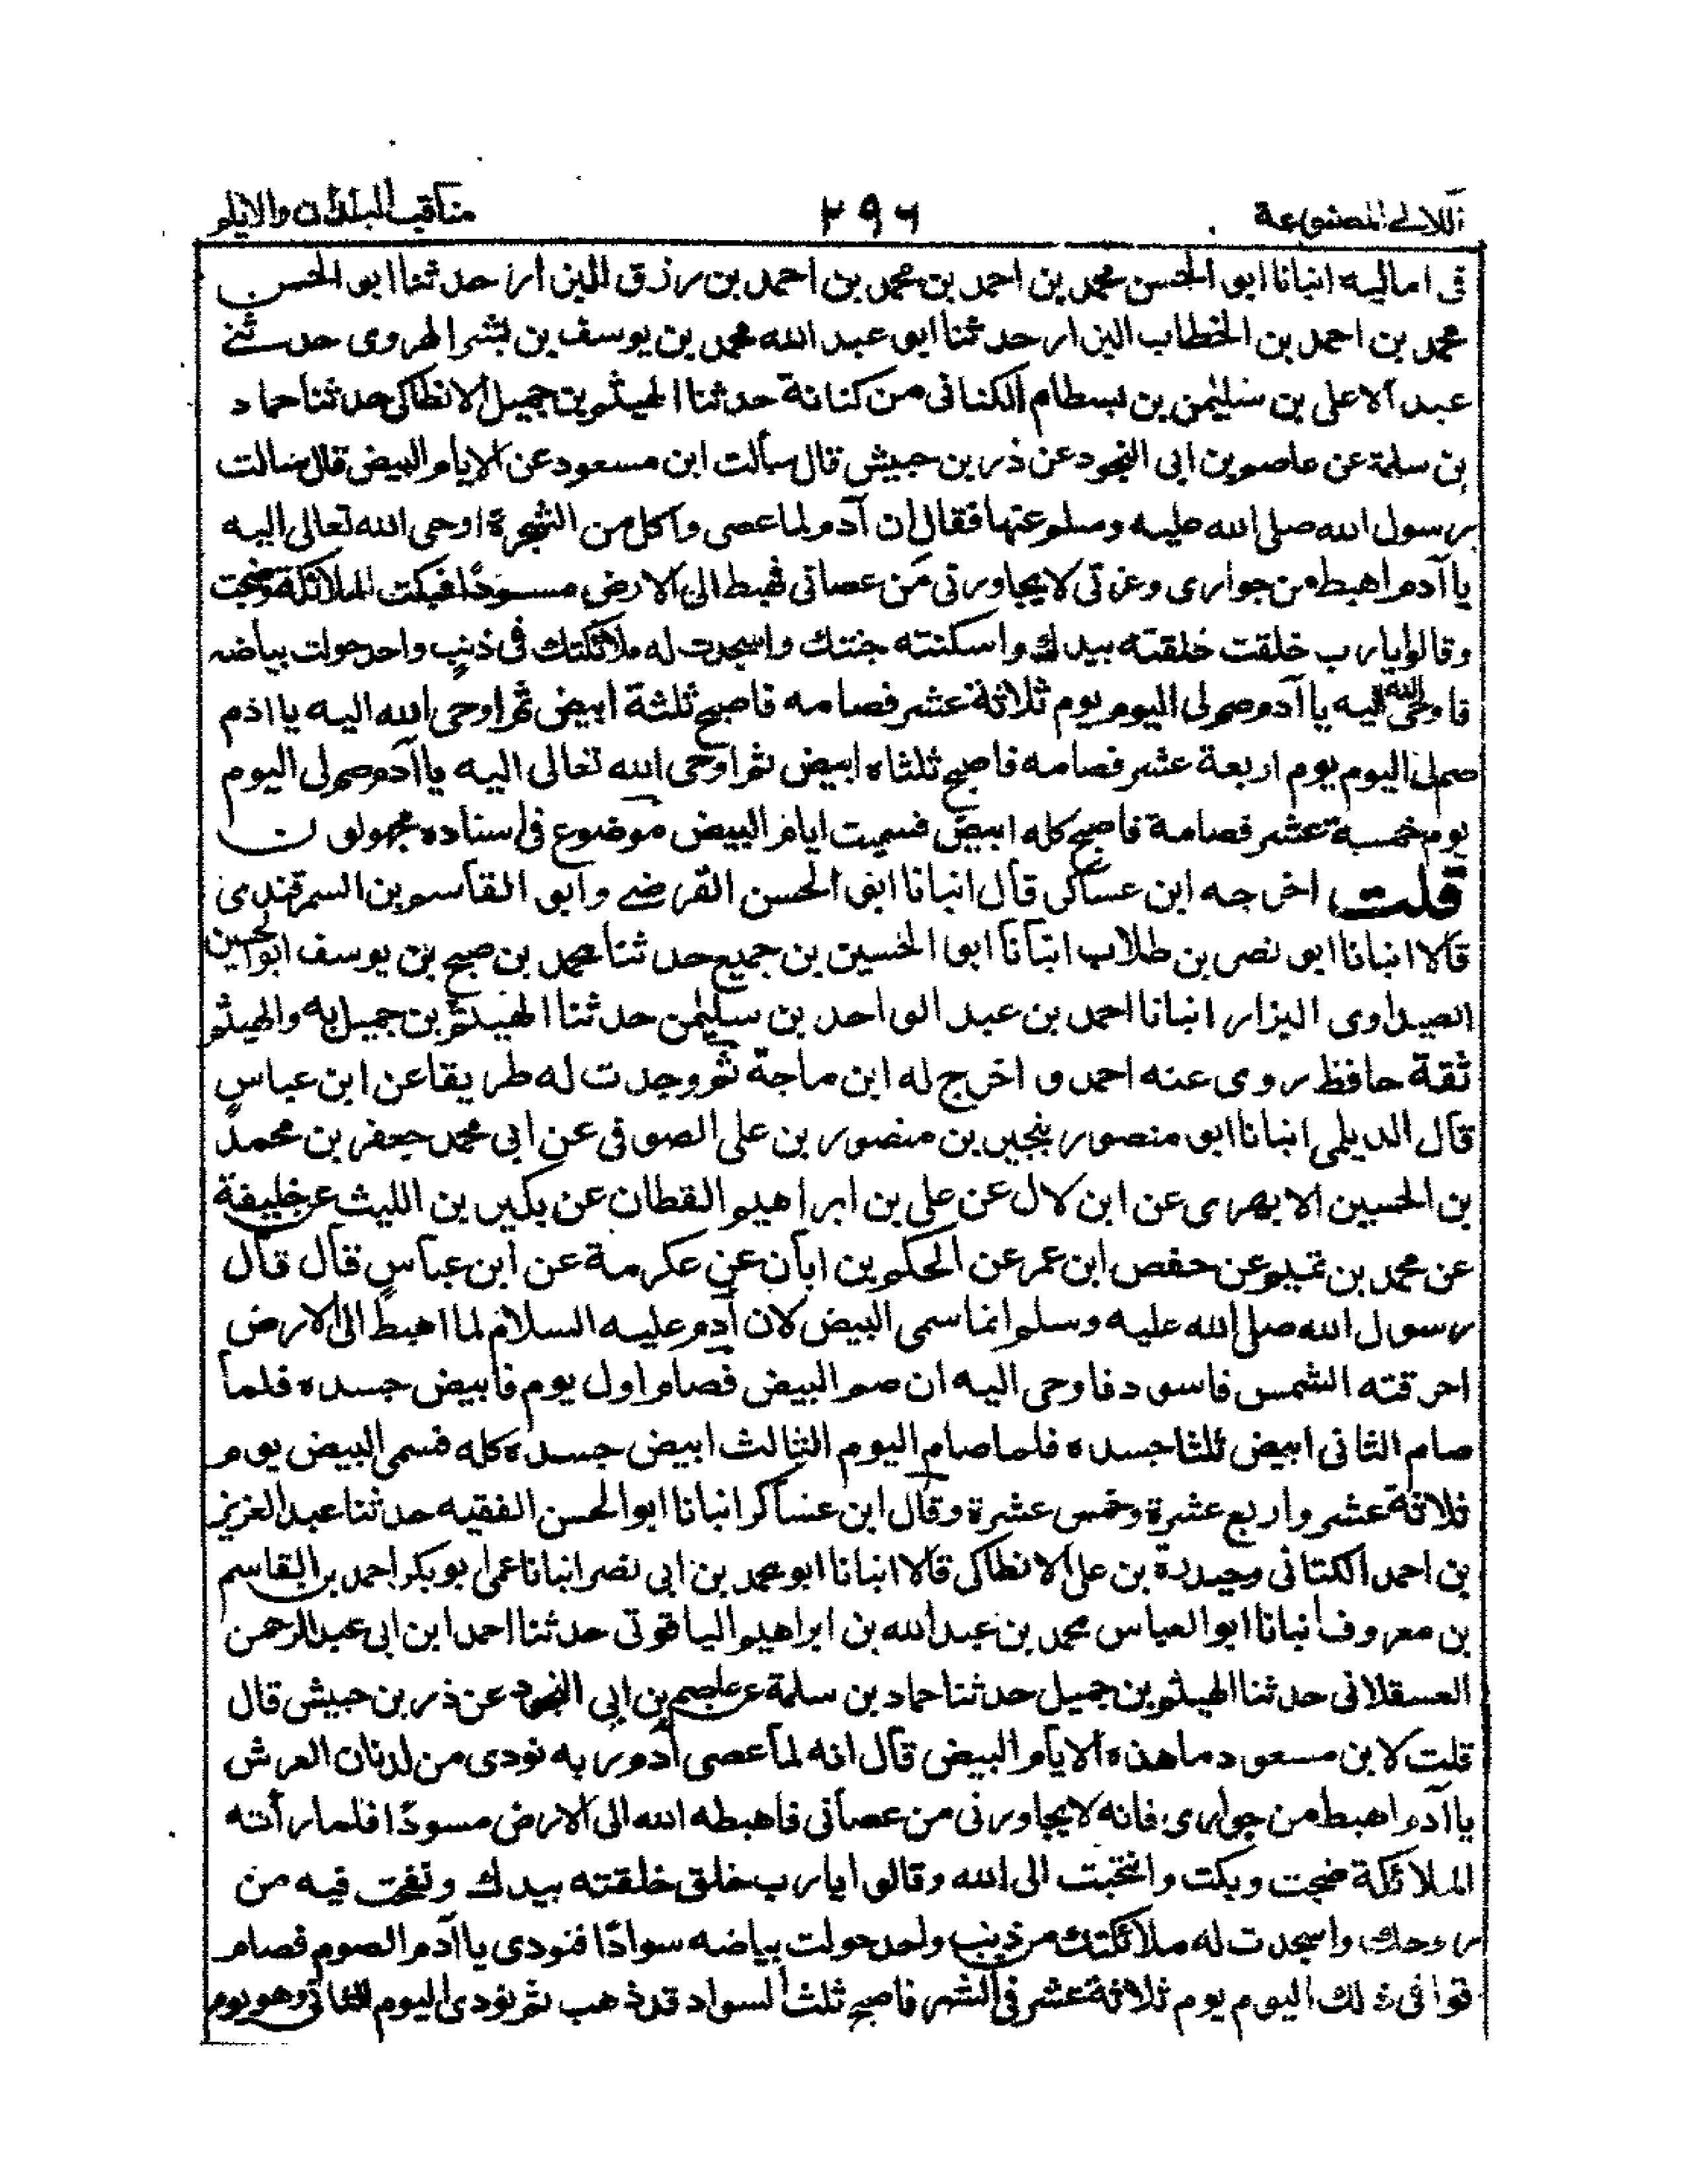 اللالى المصنوعة ٢٩٦ مناقب البلدان والايام
فى اماليه انبانا ابو الحسن محمد بن احمد بن محمد بن احمد بن رزق البزار حدثنا ابو الحسن
محمد بن احمد بن الخطاب البزار حدثنا ابو عبد الله محمد بن يوسف بن بشر الهروى حدثنے
عبد الاعلى بن سليمٰن بن بسطام الكنانى من كنانة حدثنا الهيثم بن جميل الانطاكى حدثنا حماد
بن سلمة عن عاصم بن ابى النجود عن ذر بن حبيش قال سألت ابن مسعود عن الايام البيض قال سالت
رسول الله صلى الله عليه وسلم عنها فقال ان آدم لما عصى واكل من الشجرة اوحى الله تعالى اليه
يا آدم اهبط من جوارى وعزتى لا يجاورنى من عصانى فهبط الى الارض مسودًا فبكت الملائكة وضجت
وقالوا يا رب خلقت خلقته بيدك واسكنته جنتك واسجدت له ملائكتك فى ذنبٍ واحد حولت بياضه
فاوحى الله اليه يا آدم صم لى اليوم يوم ثلاثة عشر فصامه فاصبح ثلثة ابيض ثم اوحى الله اليه يا ادم
صم لى اليوم يوم اربعة عشر فصامه فاصبح ثلثاه ابيض ثم اوحى الله تعالى اليه يا آدم صم لى اليوم
يوم خمسة عشر فصامة فاصبح كله ابيض فسميت ايام البيض موضوع فى اسناده مجهولون
قلت اخرجه ابن عساكر قال انبانا ابو الحسن الفرضے وابو القاسم بن السمرقندى
قالا انبانا ابو نصر بن طلاب انبانا ابو الحسين بن جميع حدثنا محمد بن صبح بن يوسف ابو الحسين
الصيداوى البزار انبانا احمد بن عبد الواحد بن سليمٰن حدثنا الهيثم بن جميل به والهيثم
ثقة حافظ روى عنه احمد و اخرج له ابن ماجة ثم وجدت له طريقا عن ابن عباسٍ
قال الديلمى انبانا ابو منصور بنجير بن منصور بن على الصوفى عن ابى محمد جعفر بن محمد
بن الحسين الابهرى عن ابن لال عن على بن ابراهيم القطان عن بكير بن الليث عن خليفة
عن محمد بن تميم عن حفص ابن عمر عن الحكم بن ابان عن عكرمة عن ابن عباسٍ قال قال
رسول الله صلى الله عليه وسلم انما سمى البيض لان آدم عليه السلام لما اهبط الى الارض
احرقته الشمس فاسود فاوحى اليه ان صم البيض فصام اول يوم فابيض جسده فلما
صام الثانى ابيض ثلثا جسده فلما صام اليوم الثالث ابيض جسده كله فسمى البيض يوم
ثلاثة عشر واربع عشرة وخمس عشرة وقال ابن عساكر انبانا ابو الحسن الفقيه حدثنا عبد العزيز
بن احمد الكتانى وحيدرة بن على الانطاكى قالا انبانا ابو محمد بن ابى نصر انبانا عمى ابو بكر احمد بن القاسم
بن معروف انبانا ابو العباس محمد بن عبد الله بن ابراهيم الياقوتى حدثنا احمد ابن ابى عبد الرحمن
العسقلانى حدثنا الهيثم بن جميل حدثنا حماد بن سلمة عن عاصم بن ابى النجود عن ذر بن حبيش قال
قلت لابن مسعود ما هذه الايام البيض قال انه لما عصى آدم ربه نودى من لدنان العرش
يا آدم اهبط من جوارى فانه لا يجاورنى من عصانى فاهبطه الله الى الارض مسودًا فلما رأته
الملائكة ضجت وبكت وانتحبت الى الله وقالوا يا رب خلق خلقته بيدك ونفخت فيه من
روحك واسجدت له ملائكتك من ذنبٍ واحد حولت بياضه سوادًا فنودى يا آدم الصوم فصام
فوافى ذلك اليوم يوم ثلاثة عشر فى الشهر فاصبح ثلث السواد قد ذهب ثم نودى اليوم الثانى وهو يوم